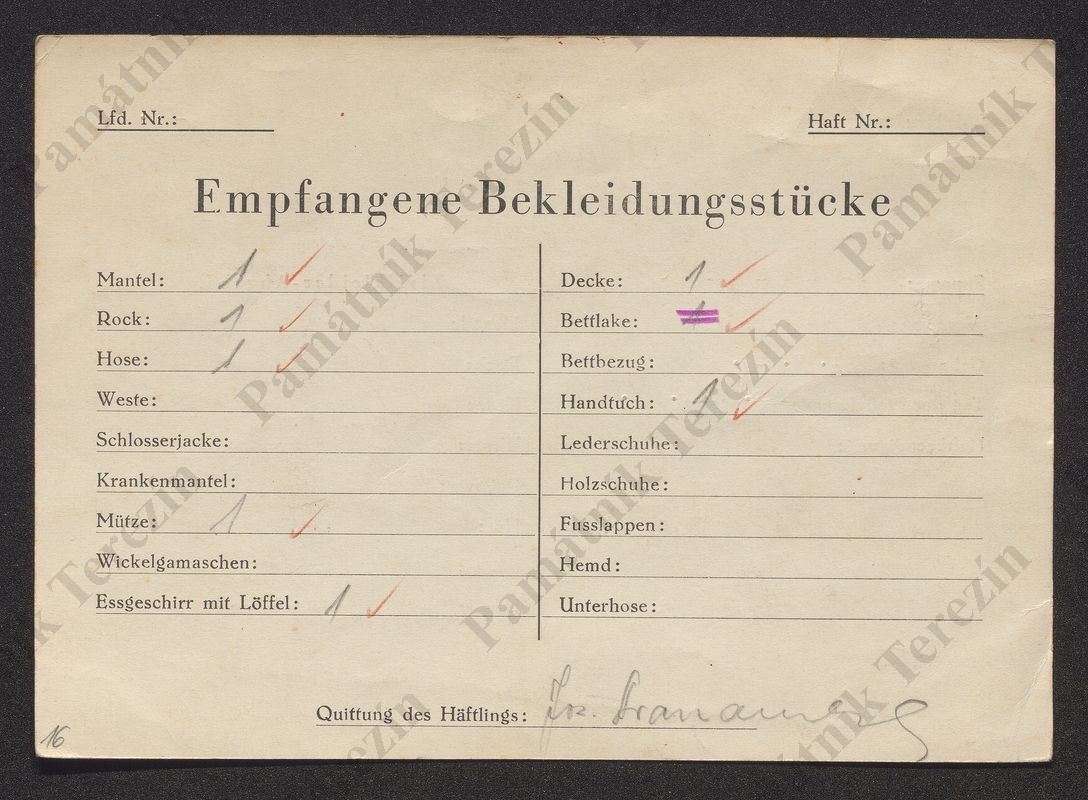 Lfd. Nr.:
Haft Nr.:
Empfangene Bekleidungsstücke
Mantel: 1 ✓
Rock: 1 ✓
Hose: 1 ✓
Weste:
Schlosserjacke:
Krankenmantel:
Mütze: 1 ✓
Wickelgamaschen:
Essgeschirr mit Löffel: 1 ✓
Decke: 1 ✓
Bettlake: 1 ✓
Bettbezug:
Handtuch: 1 ✓
Lederschuhe:
Holzschuhe:
Fusslappen:
Hemd:
Unterhose:
Quittung des Häftlings:
16
Památník Terezín